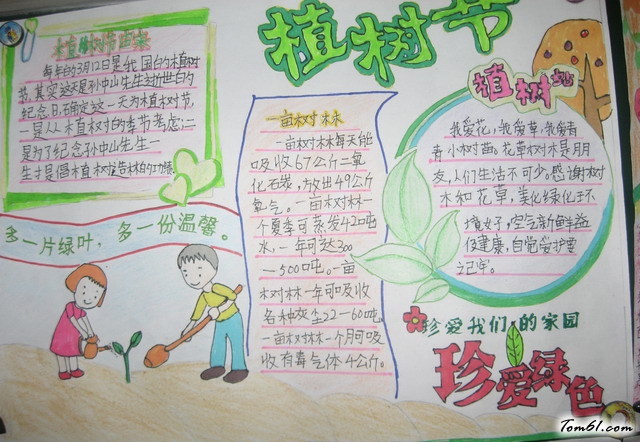 植树节
植树节由来
每年的3月12日是我国的植树
节,其实这天是孙中山先生逝世的
纪念日,确定这一天为植树节,
一是从植树的季节考虑;二
是为了纪念孙中山先生一
生才是倡植树造林的功绩
多一片绿叶,多一份温馨。
一亩树林
一亩树林每天能
吸收67公斤二氧
化石炭,放出49公斤
氧气。一亩树林一
个夏季可蒸发42吨
水,一年可达300
—500吨。一亩
树林一年可吸收
各种灰尘22—60吨。
一亩树林一个月可吸
收有毒气体4公斤。
植树
我爱花,我爱草,我爱青
青小树苗。花草树木是朋
友,人们生活不可少。感谢树
木和花草,美化绿化环
境好,空气新鲜益
健康,自觉爱护要
记牢。
珍爱我们的家园
珍爱绿色
Tom61.com